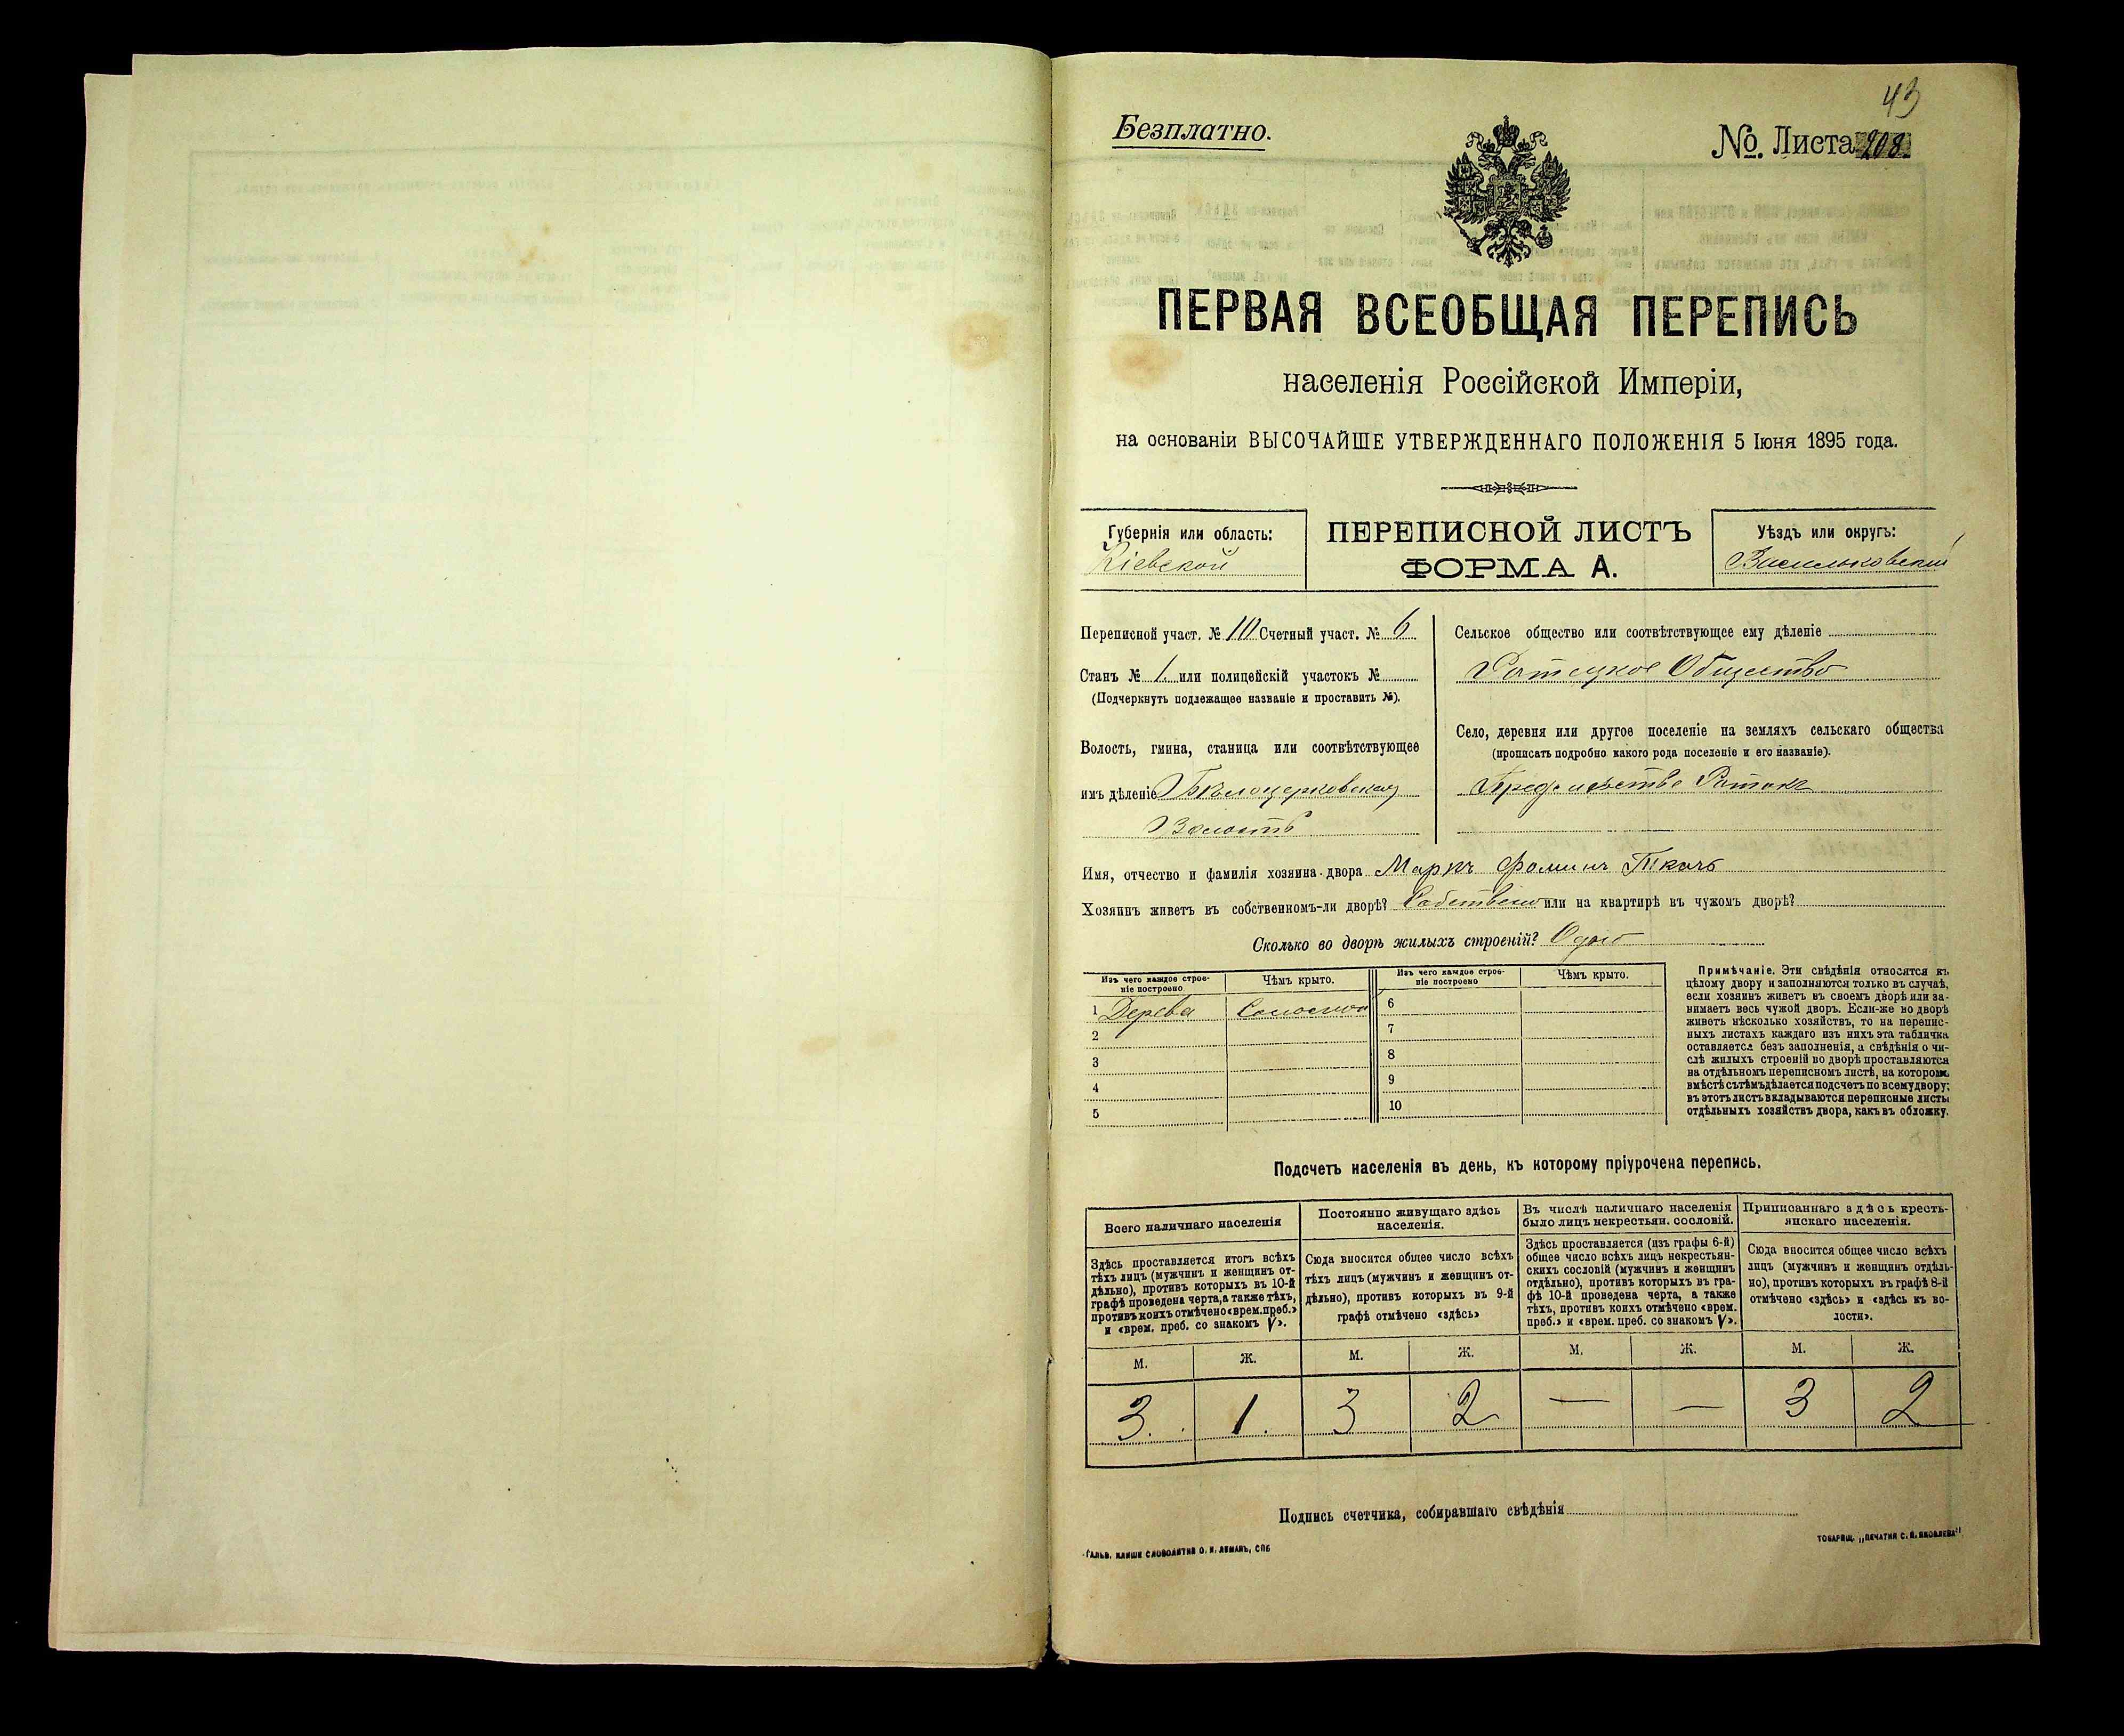 43
Безплатно.
№. Листа 208.
ПЕРВАЯ ВСЕОБЩАЯ ПЕРЕПИСЬ
населенія Россійской Имперіи,
на основаніи ВЫСОЧАЙШЕ УТВЕРЖДЕННАГО ПОЛОЖЕНІЯ 5 Іюня 1895 года.
Губернія или область:
Кіевской
ПЕРЕПИСНОЙ ЛИСТЪ
ФОРМА А.
Уѣздъ или округъ:
Васильковский
Переписной участ. № III Счетный участ. № 6
Станъ № 1. или полицейскій участокъ №
(Подчеркнуть подлежащее названіе и проставить №).
Волость, гмина, станица или соотвѣтствующее
имъ дѣленіе Бѣлоцерковская
Волость
Сельское общество или соотвѣтствующее ему дѣленіе
Ротецкое Общество
Село, деревня или другое поселеніе на земляхъ сельскаго общества
(прописать подробно какого рода поселеніе и его названіе).
Предмѣстье Ротокъ
Имя, отчество и фамилія хозяина двора Маркъ Фоминъ Ткачъ
Хозяинъ живетъ въ собственномъ-ли дворѣ? Собствено или на квартирѣ въ чужомъ дворѣ?
Сколько во дворѣ жилыхъ строеній? Одно
Изъ чего каждое строе-
ніе построено
Чѣмъ крыто.
Изъ чего каждое строе-
ніе построено
Чѣмъ крыто.
1 Дерева Соломой
2
3
4
5
6
7
8
9
10
Примѣчаніе. Эти свѣдѣнія относятся къ
цѣлому двору и заполняются только въ случаѣ,
если хозяинъ живетъ въ своемъ дворѣ или за-
нимаетъ весь чужой дворъ. Если-же во дворѣ
живетъ нѣсколько хозяйствъ, то на перепис-
ныхъ листахъ каждаго изъ нихъ эта табличка
оставляется безъ заполненія, а свѣдѣнія о чи-
слѣ жилыхъ строеній во дворѣ проставляются
на отдѣльномъ переписномъ листѣ, на которомъ
вмѣстѣ съ тѣмъ дѣлается подсчетъ по всему двору;
въ этотъ листъ вкладываются переписные листы
отдѣльныхъ хозяйствъ двора, какъ въ обложку.
Подсчетъ населенія въ день, къ которому пріурочена перепись.
Всего наличнаго населенія
Здѣсь проставляется итогъ всѣхъ
тѣхъ лицъ (мужчинъ и женщинъ от-
дѣльно), противъ которыхъ въ 10-й
графѣ проведена черта, а также тѣхъ,
противъ коихъ отмѣчено «врем. преб.»
и «врем. преб. со знакомъ V».
Постоянно живущаго здѣсь
населенія.
Сюда вносится общее число всѣхъ
тѣхъ лицъ (мужчинъ и женщинъ от-
дѣльно), противъ которыхъ въ 9-й
графѣ отмѣчено «здѣсь»
Въ числѣ наличнаго населенія
было лицъ некрестьян. сословій.
Здѣсь проставляется (изъ графы 6-й)
общее число всѣхъ лицъ некрестьян-
скихъ сословій (мужчинъ и женщинъ
отдѣльно), противъ которыхъ въ гра-
фѣ 10-й проведена черта, а также
тѣхъ, противъ коихъ отмѣчено «врем.
преб.» и «врем. преб. со знакомъ V».
Приписаннаго здѣсь кресть-
янскаго населенія.
Сюда вносится общее число всѣхъ
лицъ (мужчинъ и женщинъ отдѣль-
но), противъ которыхъ въ графѣ 8-й
отмѣчено «здѣсь» и «здѣсь къ во-
лости».
М. Ж. М. Ж. М. Ж. М. Ж.
3. 1. 3 2 — — 3 2
Подпись счетчика, собиравшаго свѣдѣнія
ГАЛЬВ. КЛИШЕ СЛОВОЛИТНИ О. И. ЛЕМАНЪ, СПБ
ТОВАРИЩ. „ПЕЧАТНЯ С. П. ЯКОВЛЕВА"